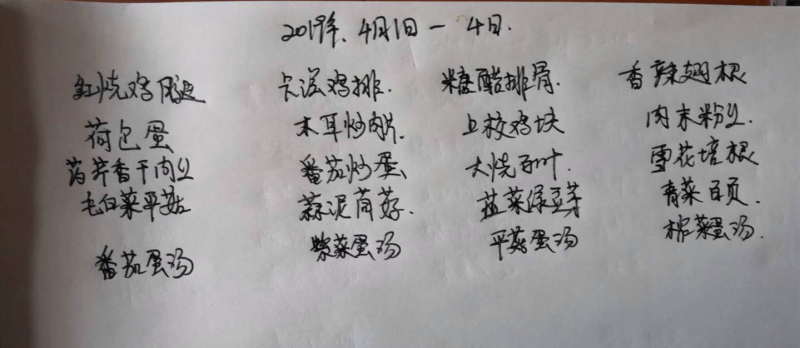 2019年、4月1日－4日.
红烧鸡腿 卡滋鸡排. 糖醋排骨. 香辣翅根
荷包蛋 木耳炒肉片. 上校鸡块 肉末粉丝.
芹香干肉丝 番茄炒蛋 大烧百叶. 雪花培根
毛白菜平菇 蒜泥茼蒿. 韭菜绿豆芽 青菜百页.
番茄蛋汤 紫菜蛋汤 平菇蛋汤 榨菜蛋汤.